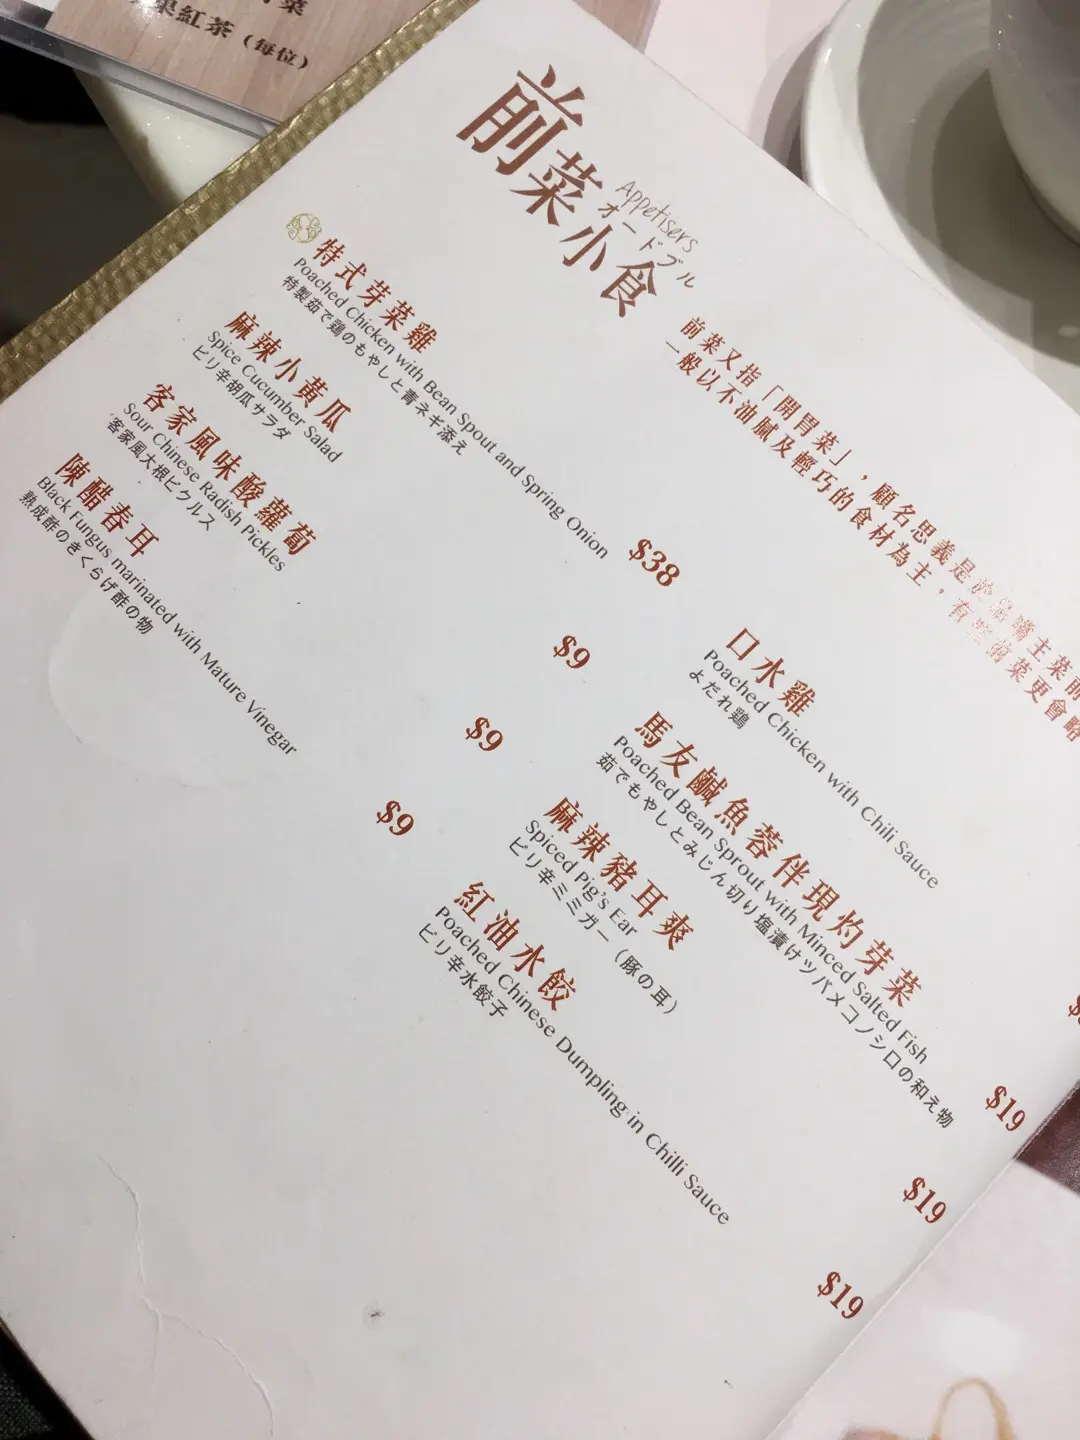 菜
果紅茶（每位）
前菜小食
Appetisers
オードブル
前菜又指「開胃菜」，顧名思義是於品嚐主菜前
一般以不油膩及輕巧的食材為主，有些前菜更會略
特式芽菜雞
Poached Chicken with Bean Spout and Spring Onion
特製茹で鶏のもやしと青ネギ添え
$38
麻辣小黃瓜
Spice Cucumber Salad
ピリ辛胡瓜サラダ
$9
客家風味酸蘿蔔
Sour Chinese Radish Pickles
客家風大根ピクルス
$9
陳醋春耳
Black Fungus marinated with Mature Vinegar
熟成酢のきくらげ酢の物
$9
口水雞
Poached Chicken with Chili Sauce
よだれ鶏
馬友鹹魚蓉伴現灼芽菜
Poached Bean Sprout with Minced Salted Fish
茹でもやしとみじん切り塩漬けツバメコノシロの和え物
$19
麻辣豬耳爽
Spiced Pig's Ear
ピリ辛ミミガー（豚の耳）
$19
紅油水餃
Poached Chinese Dumpling in Chilli Sauce
ピリ辛水餃子
$19